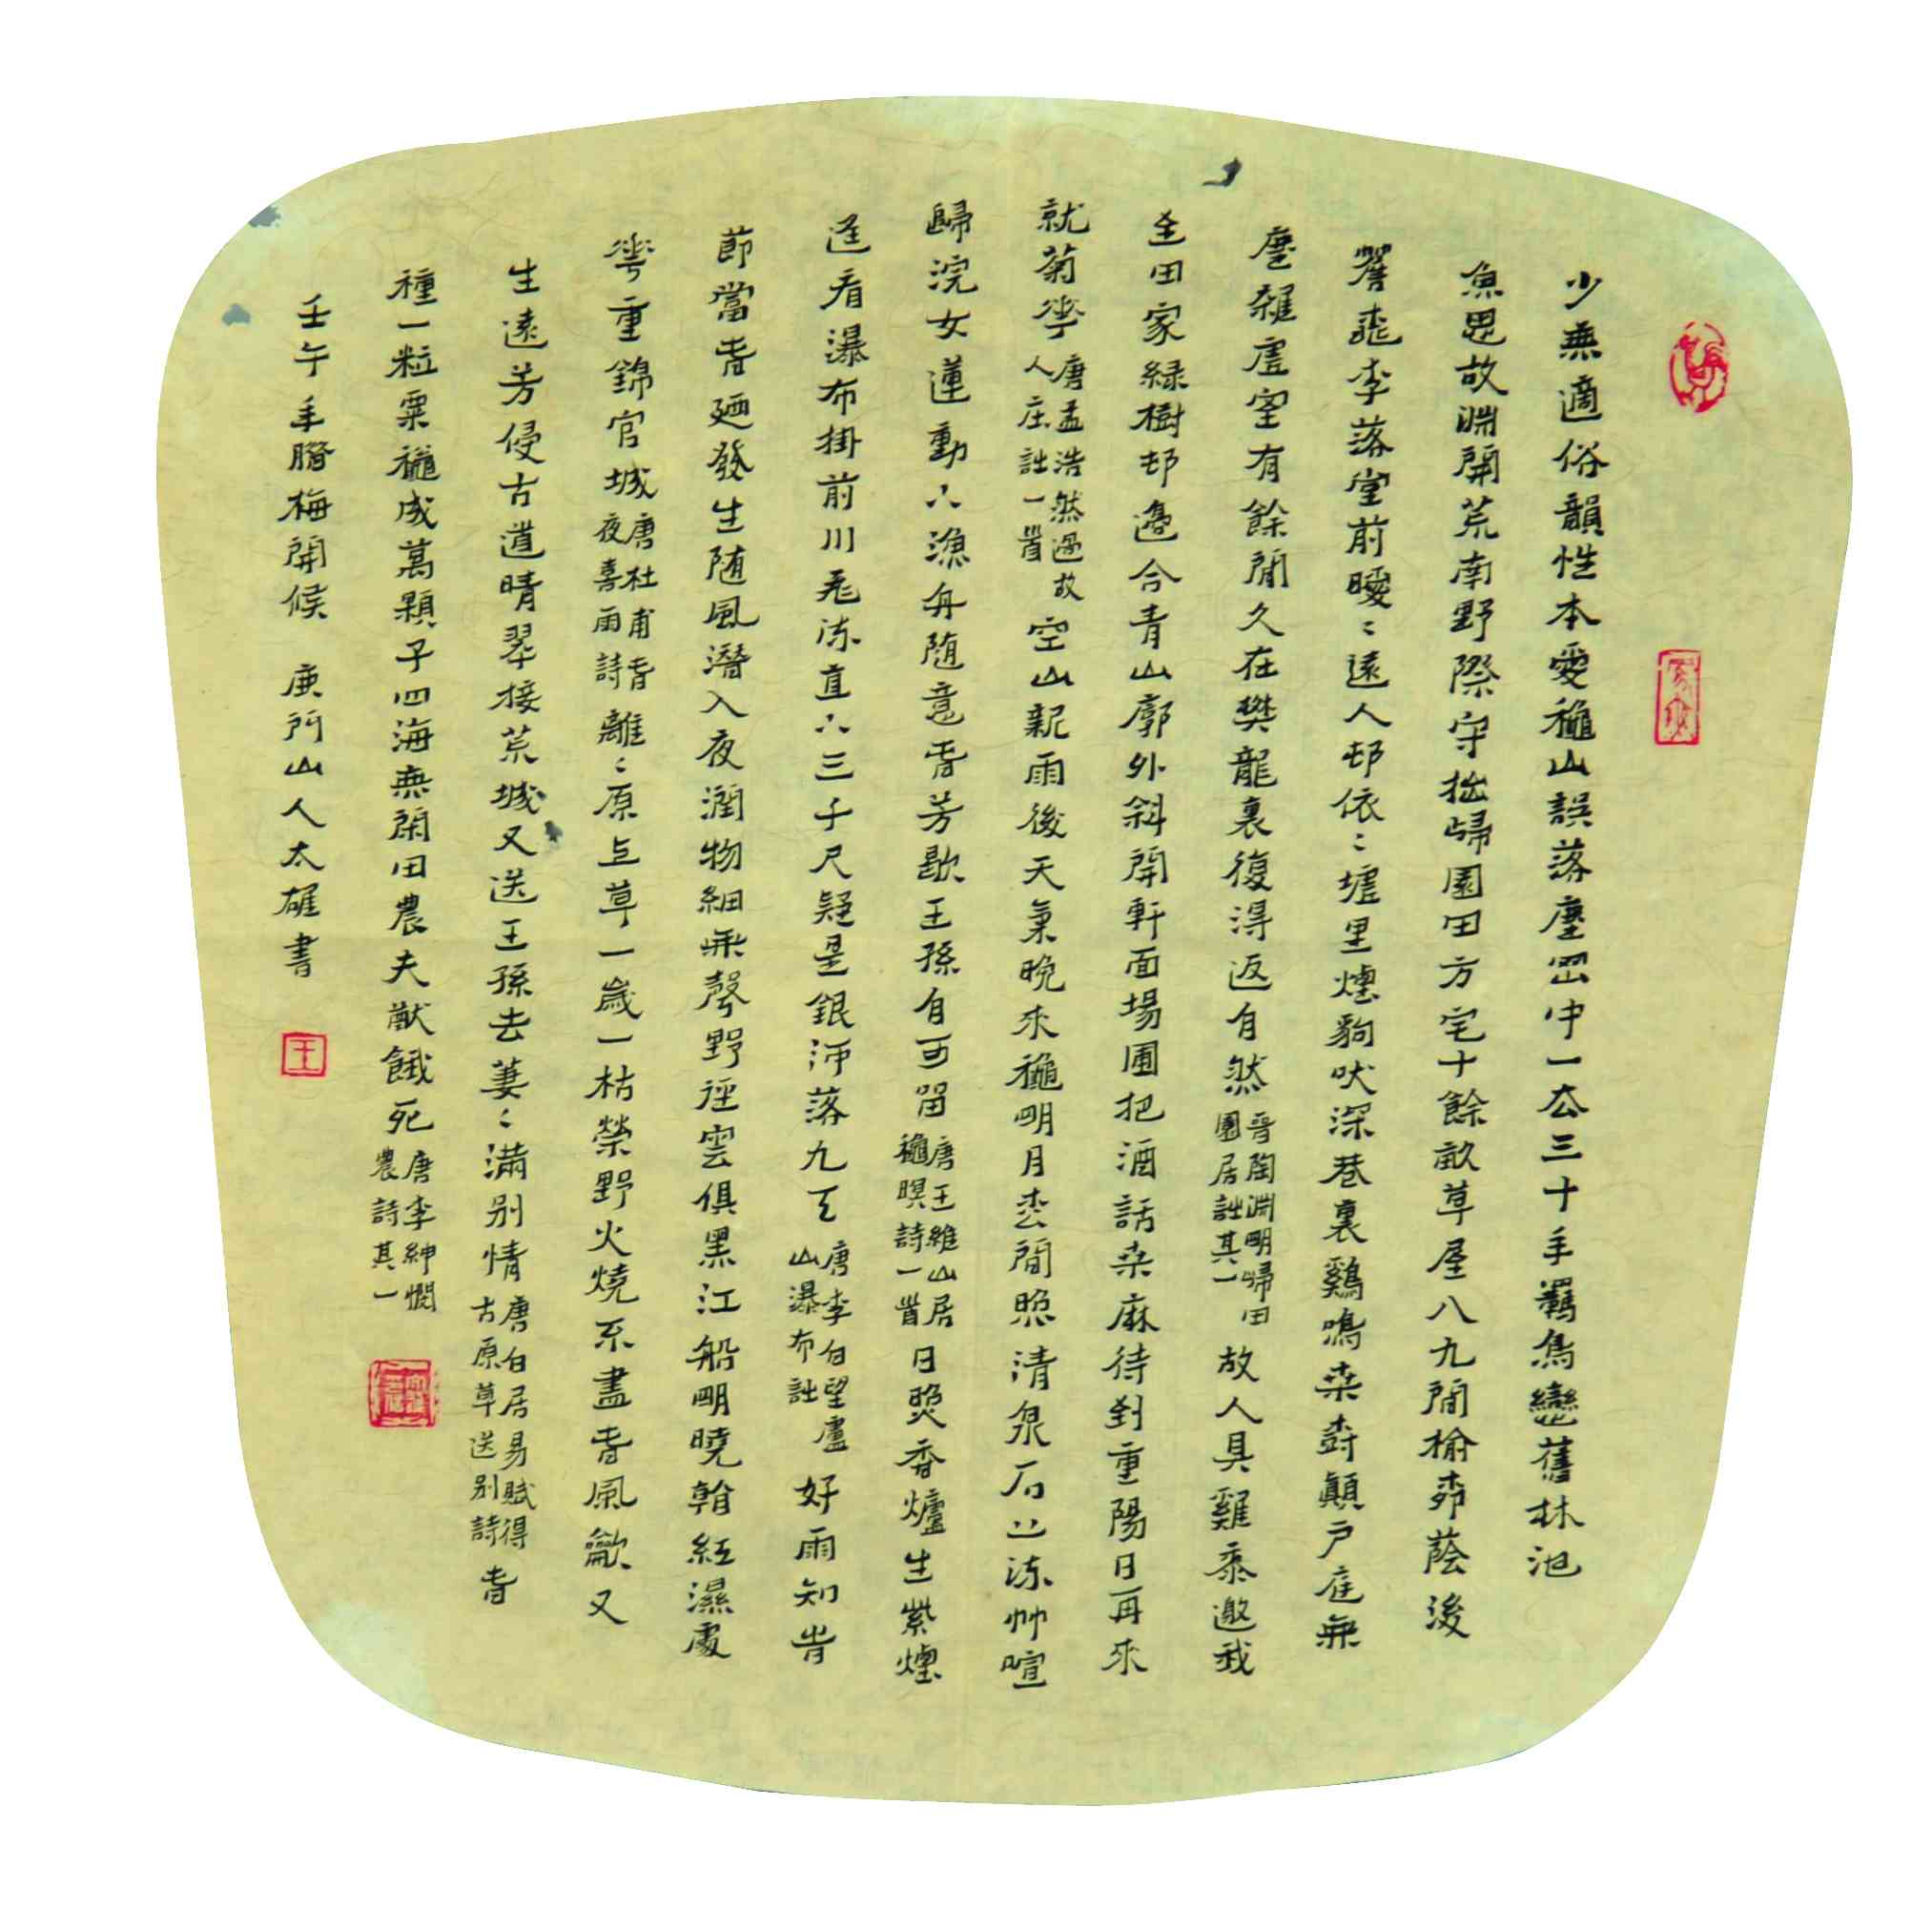 少無適俗韻性本愛龝山誤落塵罒中一厺三十年羈鳥戀舊林池
魚思故淵開荒南野際守拙歸園田方宅十餘畝草屋八九間榆桺蔭後
簷桃李落堂前曖〻遠人邨依〻墟里煙狗吠深巷裏鷄鳴桒樹顛戶庭無
塵雜虛室有餘閒久在樊籠裏復得返自然
晉陶淵明歸田
園居詩其一
故人具雞黍邀我
至田家綠樹邨邊合青山廓外斜開軒面場圃把酒話桒麻待到重陽日再來
就菊花
唐孟浩然過故
人庄詩一首
空山新雨後天氣晚來龝明月松間照清泉石上流竹喧
歸浣女蓮動下漁舟随意春芳歇王孫自可留
唐王維山居
龝暝詩一首
日照香爐生紫煙
遙看瀑布掛前川飛流直下三千尺疑是銀河落九天
唐李白望廬
山瀑布詩
好雨知時
節當春廼發生随風潛入夜潤物細無聲野徑雲俱黑江船明曉看紅濕處
花重錦官城
唐杜甫春
夜喜雨詩
離〻原上草一歲一枯榮野火燒不盡春風龡又
生遠芳侵古道晴翠接荒城又送王孫去萋〻滿別情
唐白居易賦得
古原草送別詩
春
種一粒粟龝成萬顆子四海無閑田農夫猷餓死
唐李紳憫
農詩其一
壬午年臘梅開候 庚門山人太雄書
王